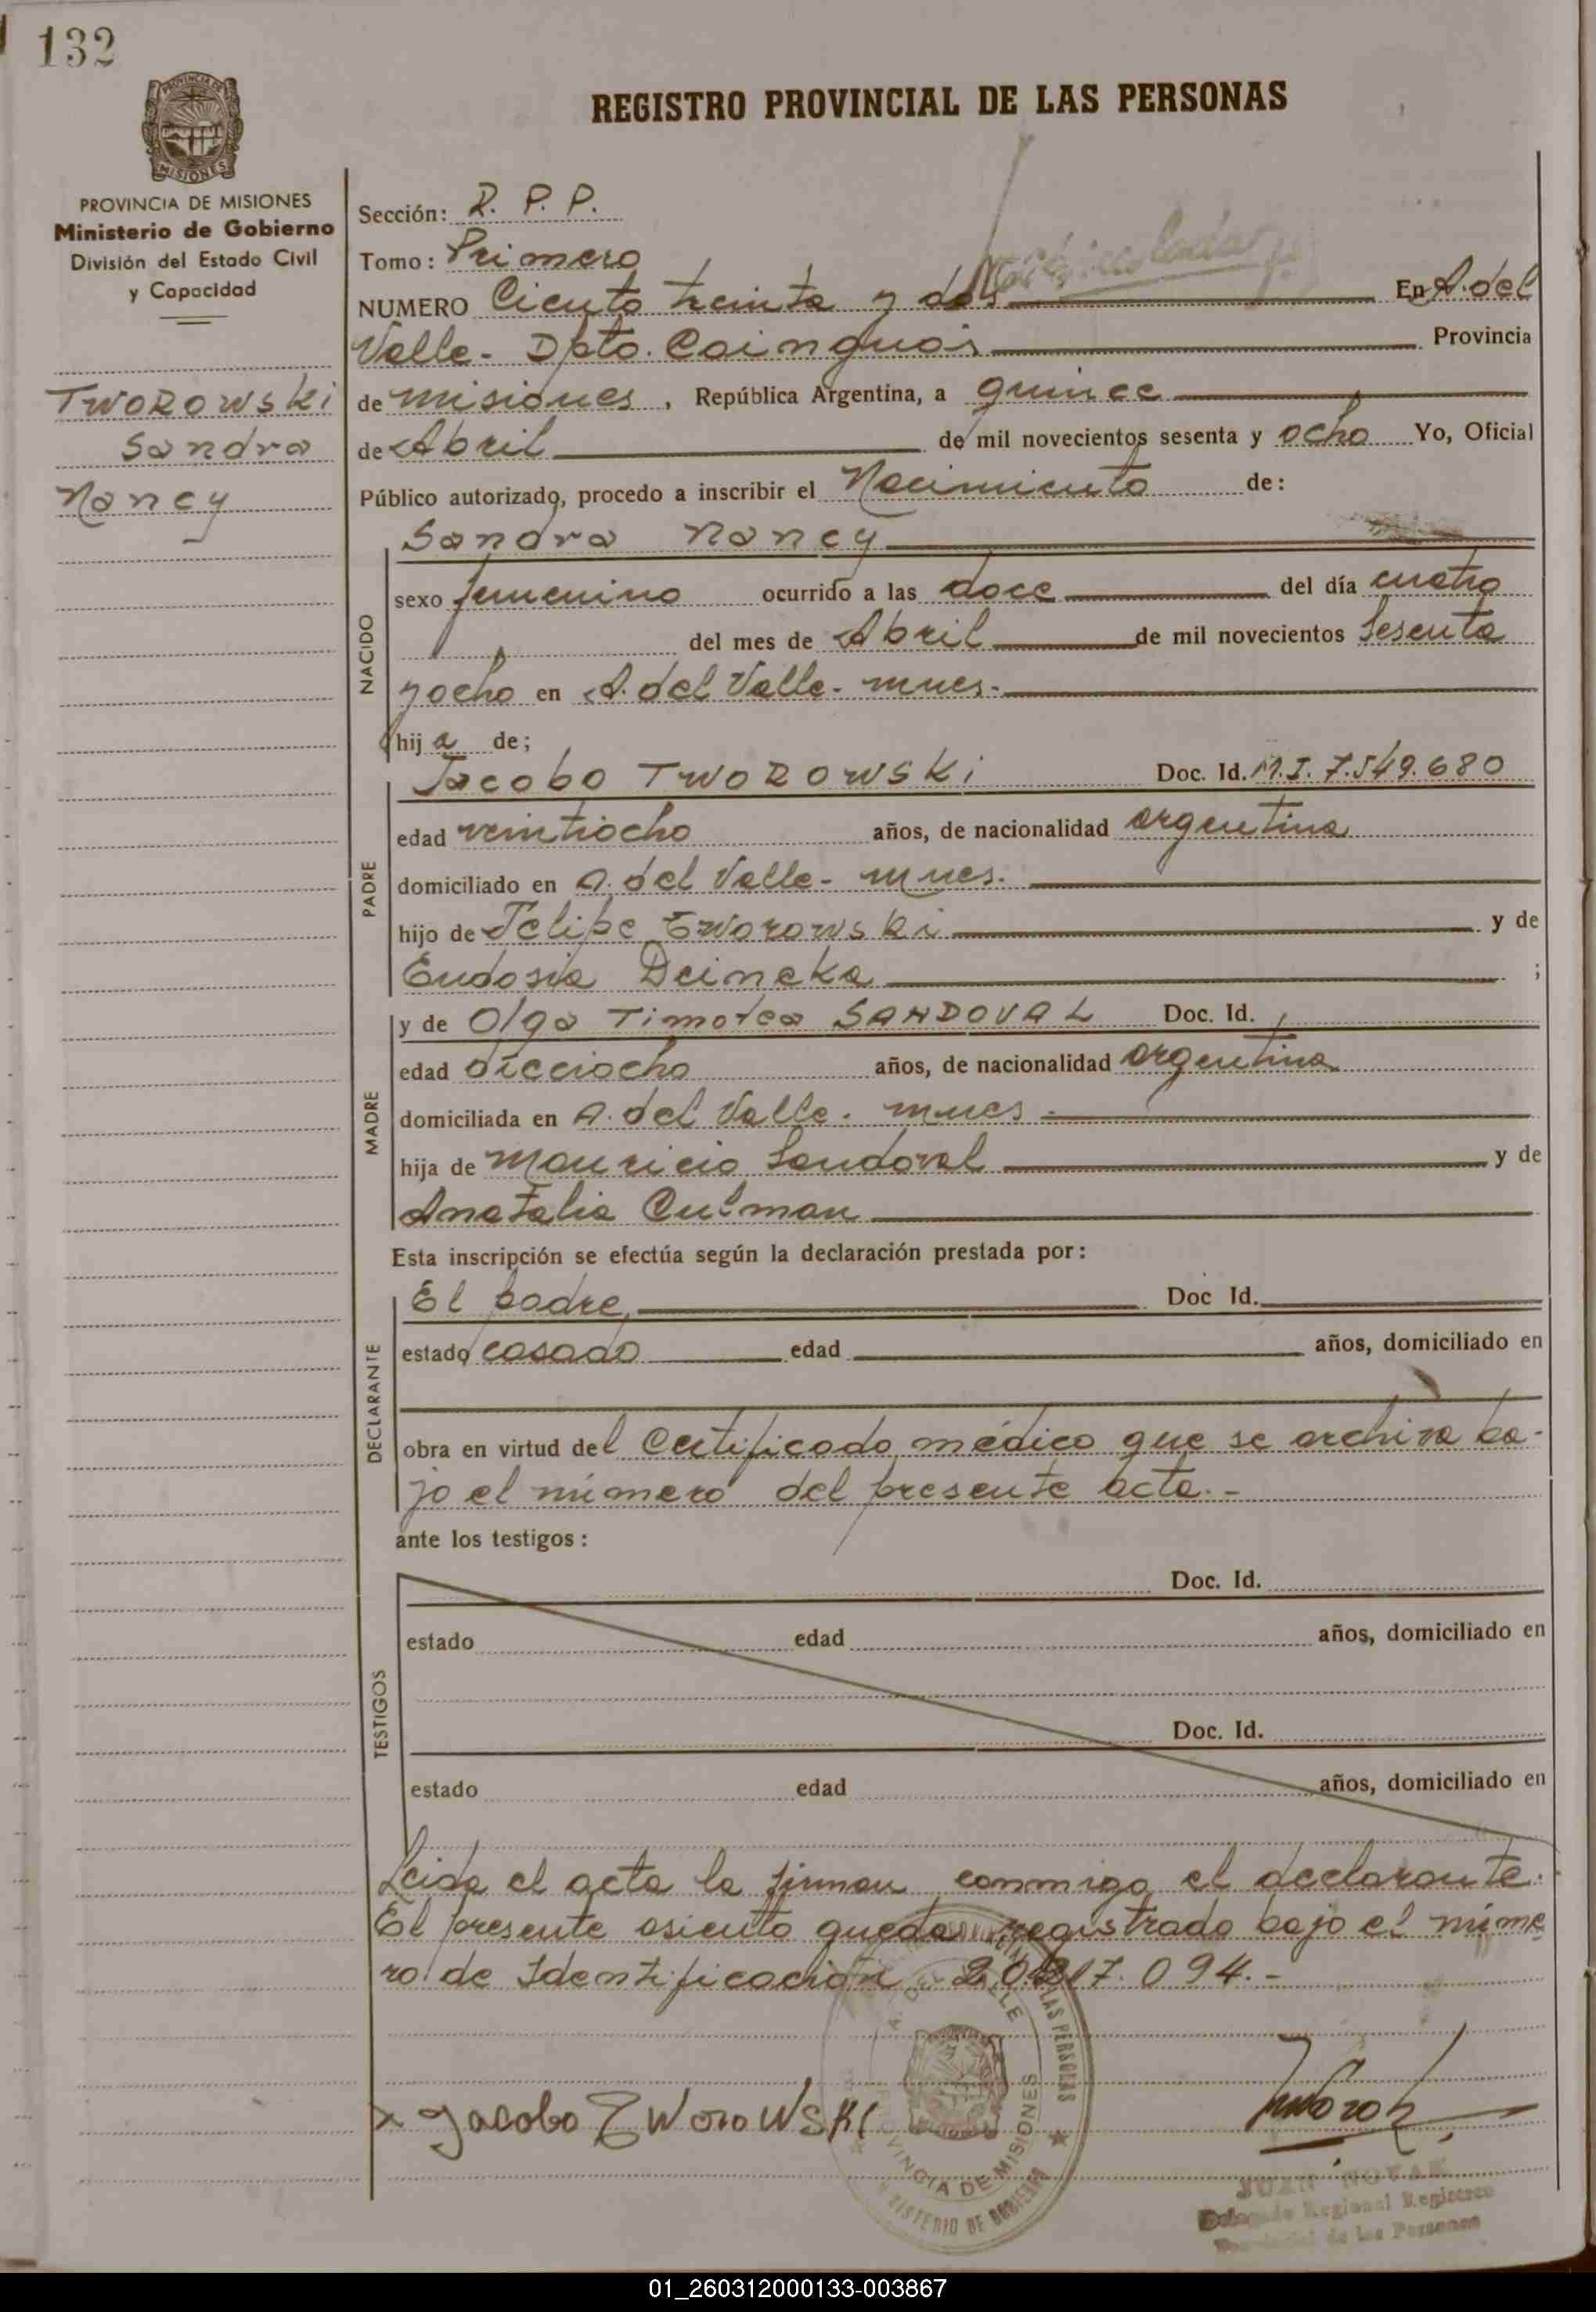 132
REGISTRO PROVINCIAL DE LAS PERSONAS
PROVINCIA DE MISIONES
Ministerio de Gobierno
División del Estado Civil
y Capacidad
TWOROWSKi
Sandra
Nancy
Sección: R. P. P.
Tomo: Primero
NUMERO Ciento treinta y dos En A. del
Valle - Dpto. Cainguás Provincia
de Misiones, República Argentina, a quince
de Abril de mil novecientos sesenta y ocho Yo, Oficial
Público autorizado, procedo a inscribir el Nacimiento de:
NACIDO
Sandra Nancy
sexo femenino ocurrido a las doce del día cuatro
del mes de Abril de mil novecientos Sesenta
y ocho en A. del Valle - Mnes.
hija de;
PADRE
Jacobo TWOROWSKi Doc. Id. M.I. 7.549.680
edad veintiocho años, de nacionalidad argentina
domiciliado en A. del Valle - Mnes.
hijo de Felipe Tworowski y de
Eudosia Deineka ;
MADRE
y de Olga Timotea SANDOVAL Doc. Id.
edad dieciocho años, de nacionalidad argentina
domiciliada en A. del Valle - Mnes.
hija de Mauricio Sandoval y de
Anatalia Culman
Esta inscripción se efectúa según la declaración prestada por:
DECLARANTE
El padre, Doc Id.
estado casado edad años, domiciliado en
obra en virtud del Certificado médico que se archiva ba-
jo el número del presente acta.-
ante los testigos:
TESTIGOS
Doc. Id.
estado edad años, domiciliado en
Doc. Id.
estado edad años, domiciliado en
Leida el acta la firman conmigo el declarante.
El presente asiento queda registrado bajo el núme
ro de Identificación 20.217.094.-
x Jacobo TWoroWSKi
A. DEL VALLE
PROVINCIA DE MISIONES
MINISTERIO DE GOBIERNO
JUAN NOVAK
Delegado Regional Registro
Provincial de las Personas
01_260312000133-003867